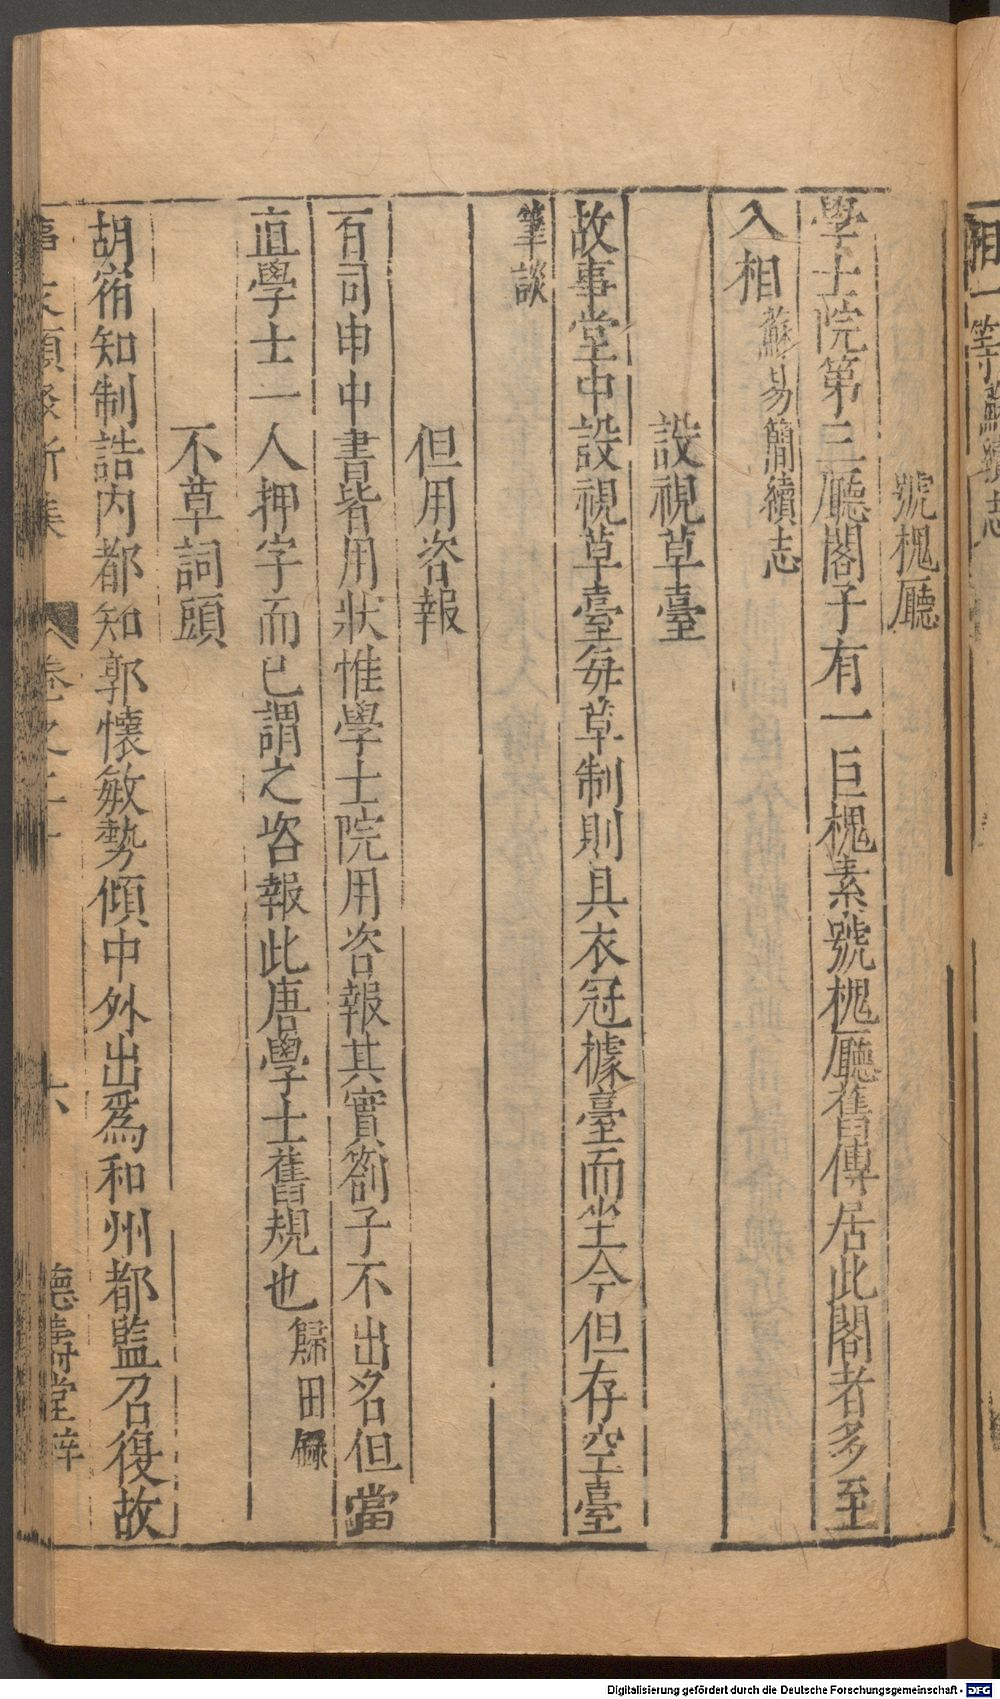 號槐廳
學士院第三廳閣子有一巨槐素號槐廳舊傳居此閣者多至
入相蘇易簡續志
設視草臺
故事堂中設視草臺每草制則具衣冠據臺而坐今但存空臺
筆談
但用咨報
百司申中書皆用狀惟學士院用咨報其實劄子不出名但當
直學士一人押字而已謂之咨報此唐學士舊規也歸田錄
不草詞頭
胡宿知制誥內都知郭懷敏勢傾中外出爲和州都監召復故
六
德壽堂梓
相一等
Digitalisierung gefördert durch die Deutsche Forschungsgemeinschaft - DFG